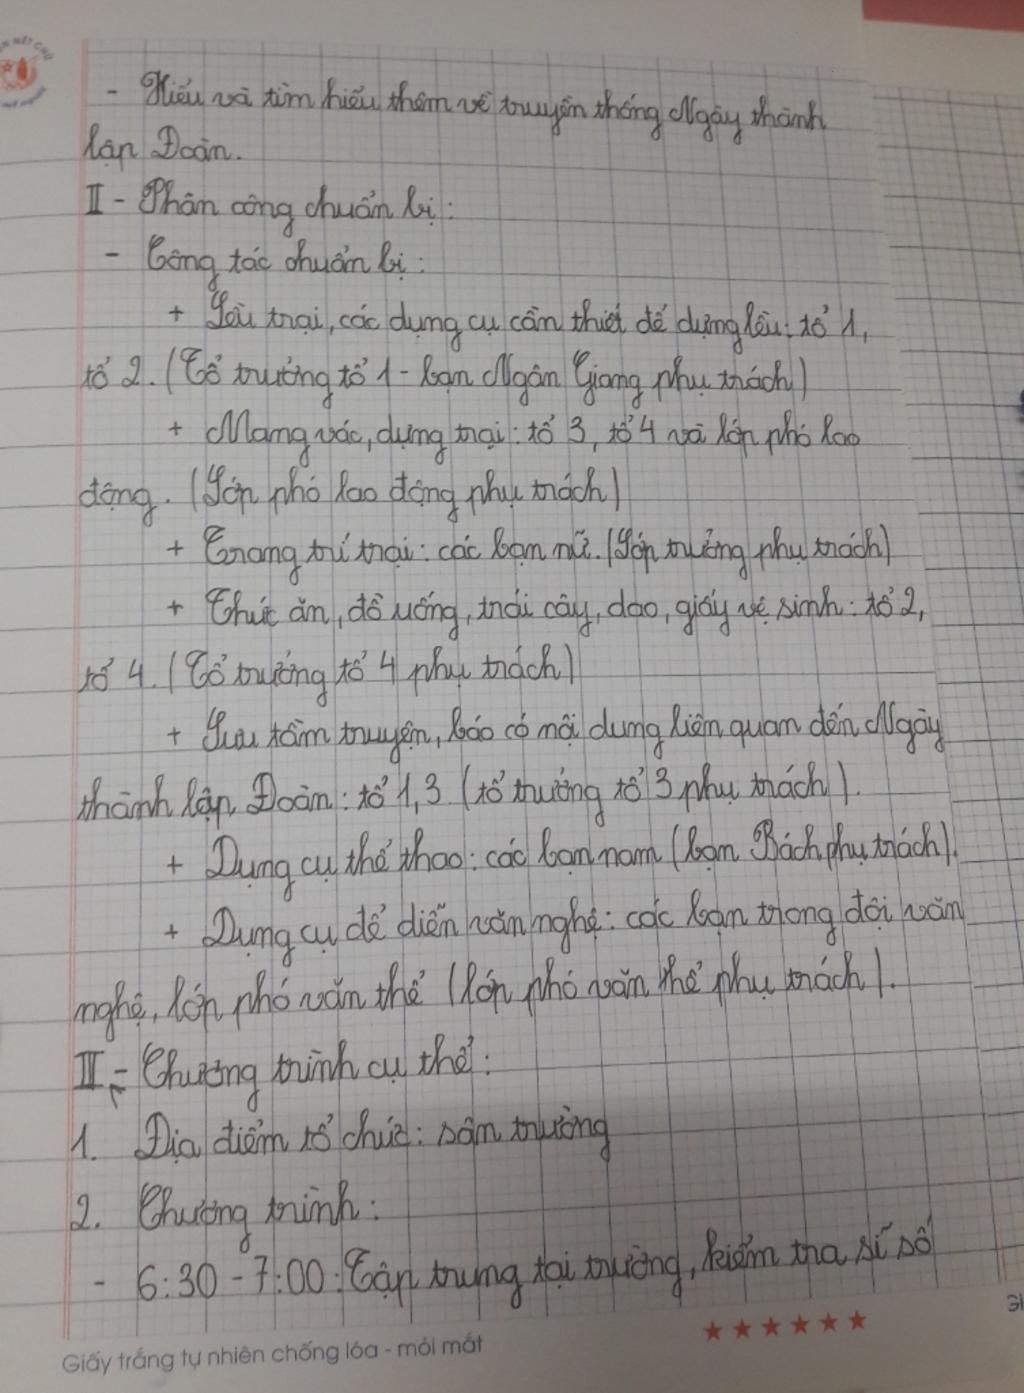 - Hiểu và tìm hiểu thêm về truyền thống Ngày thành
lập Đoàn.
II - Phân công chuẩn bị:
- Công tác chuẩn bị:
+ Lều trại, các dụng cụ cần thiết để dựng lều: tổ 1,
tổ 2. (Tổ trưởng tổ 1 - bạn Ngân Giang phụ trách)
+ Mang vác, dựng trại: tổ 3, tổ 4 và lớp phó lao
động. (Lớp phó lao động phụ trách)
+ Trang trí trại: các bạn nữ. (Lớp trưởng phụ trách)
+ Thức ăn, đồ uống, trái cây, dao, giấy vệ sinh: tổ 2,
tổ 4. (Tổ trưởng tổ 4 phụ trách)
+ Sưu tầm truyện, báo có nội dung liên quan đến Ngày
thành lập Đoàn: tổ 1, 3 (tổ trưởng tổ 3 phụ trách).
+ Dụng cụ thể thao: các bạn nam (bạn Bách phụ trách).
+ Dụng cụ để diễn văn nghệ: các bạn trong đội văn
nghệ, lớp phó văn thể (lớp phó văn thể phụ trách).
III - Chương trình cụ thể:
1. Địa điểm tổ chức: sân trường
2. Chương trình:
- 6:30 - 7:00: Tập trung tại trường, kiểm tra sĩ số
Giấy trắng tự nhiên chống lóa - mỏi mắt